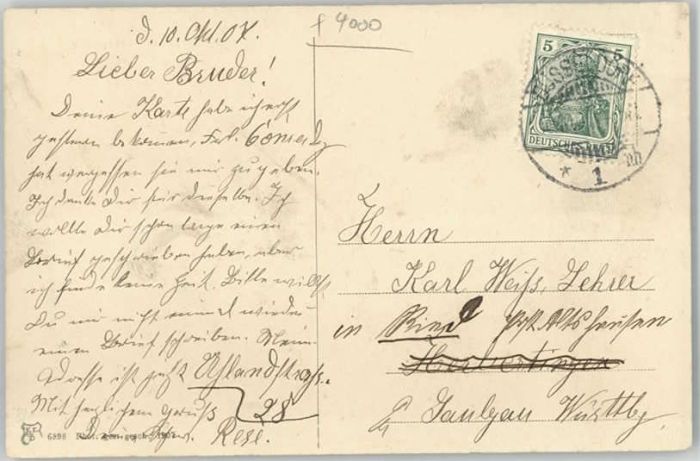 D. 10. Okt. 07.
f 4000
Lieber Bruder!
Deine Karte habe ich erst
gestern bekommen, Frl.
hat vergessen sie mir zu geben.
Ich danke Dir für dieselbe. Ich
wollte Dir schon lange einen
Brief geschrieben haben, aber
ich finde keine Zeit. Bitte willst
Du mir nicht einmal wieder
einen Brief schreiben. Meine
Adresse ist jetzt Uhlandstraße
28
Mit herzlichem Gruß
Rese.
6898
5 5
DEUTSCHES REICH
DÜSSELDORF
* 1
Herrn
Karl Weiß, Lehrer
in Ried Post Altshausen
Herbertingen
Saulgau Württbg.